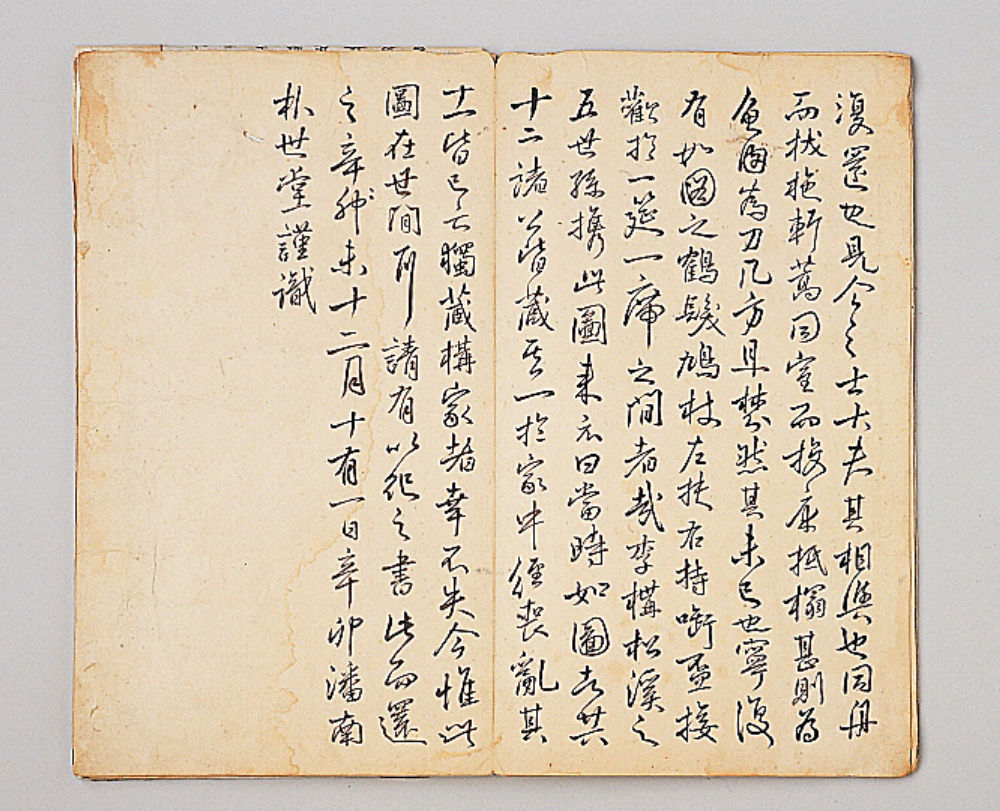 復還也見今之士大夫其相與也同舟
而拔柁軒蒿同室而投床抵榻甚則為
魚肉為刀几方且愁然其未已也寧復
有如圖之鶴髮鳩杖左扶右持啣盃接
歡於一筵一席之間者哉李構松溪之
五世孫携此圖来示曰當時如圖者共
十二諸公皆藏其一於家中經喪亂其
十一皆已亡獨藏構家者幸不失今惟此
圖在世間耳請有以紀之書此而還
之辛未十二月十有一日辛卯潘南
朴世堂謹識